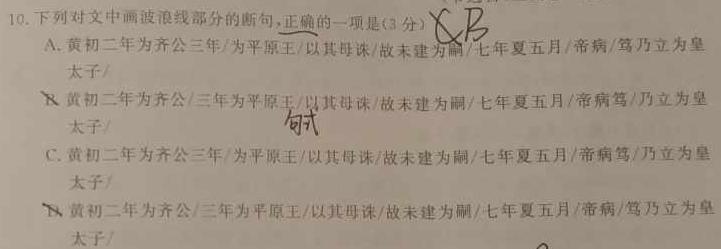 10. 下列对文中画波浪线部分的断句,正确的一项是(3分) B
A. 黄初二年为齐公三年/为平原王/以其母诛/故未建为嗣/七年夏五月/帝病/笃乃立为皇
太子/
B. 黄初二年为齐公/三年为平原王/以其母诛/故未建为嗣/七年夏五月/帝病笃/乃立为皇
太子/
句式
C. 黄初二年为齐公三年/为平原王/以其母诛/故未建为嗣/七年夏五月/帝病笃/乃立为皇
太子/
D. 黄初二年为齐公/三年为平原王/以其母诛/故未建为嗣/七年夏五月/帝病/笃乃立为皇
太子/